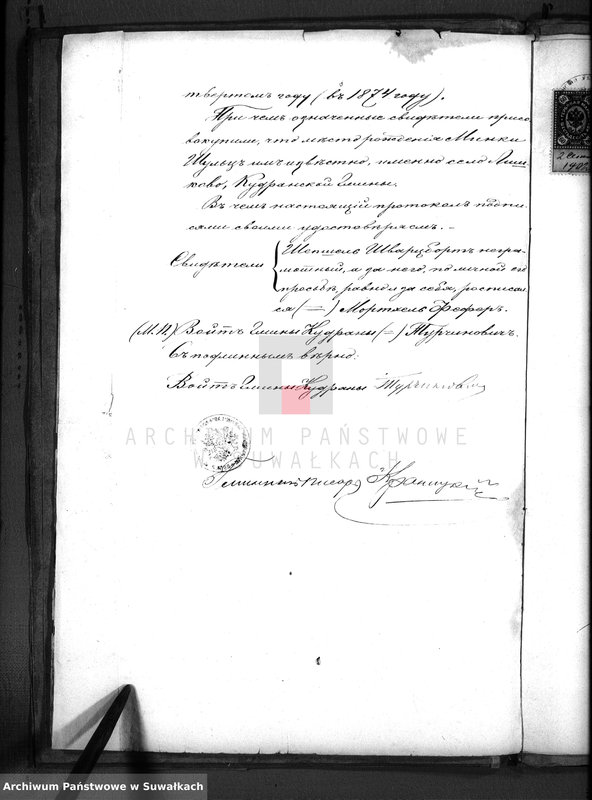 твертомъ году (въ 1874 году).
При чемъ означенные свидѣтели присо
вокупили, что мѣсто рожденія Минки
Шулецъ имъ извѣстно, именно село Лиш
ково, Кудранской Гмины.
Въ чемъ настоящій протоколъ подпи
сями своими удостовѣряемъ. –
Свидѣтели { Шепшель Шварцбортъ негра-
мотный, а за него, по личной его
просьбѣ, равно и за себя, росписал
ся, (–) Мортхель Феферъ.
(М.П.) Войтъ Гмины Кудраны (–) Турчиновичъ.
Съ подлиннымъ вѣрно:
Войтъ Гмины Кудраны Турчиновичъ
ARCHIWUM PAŃSTWOWE
W SUWAŁKACH
Гминный Писарь
2
1902
Archiwum Państwowe w Suwałkach